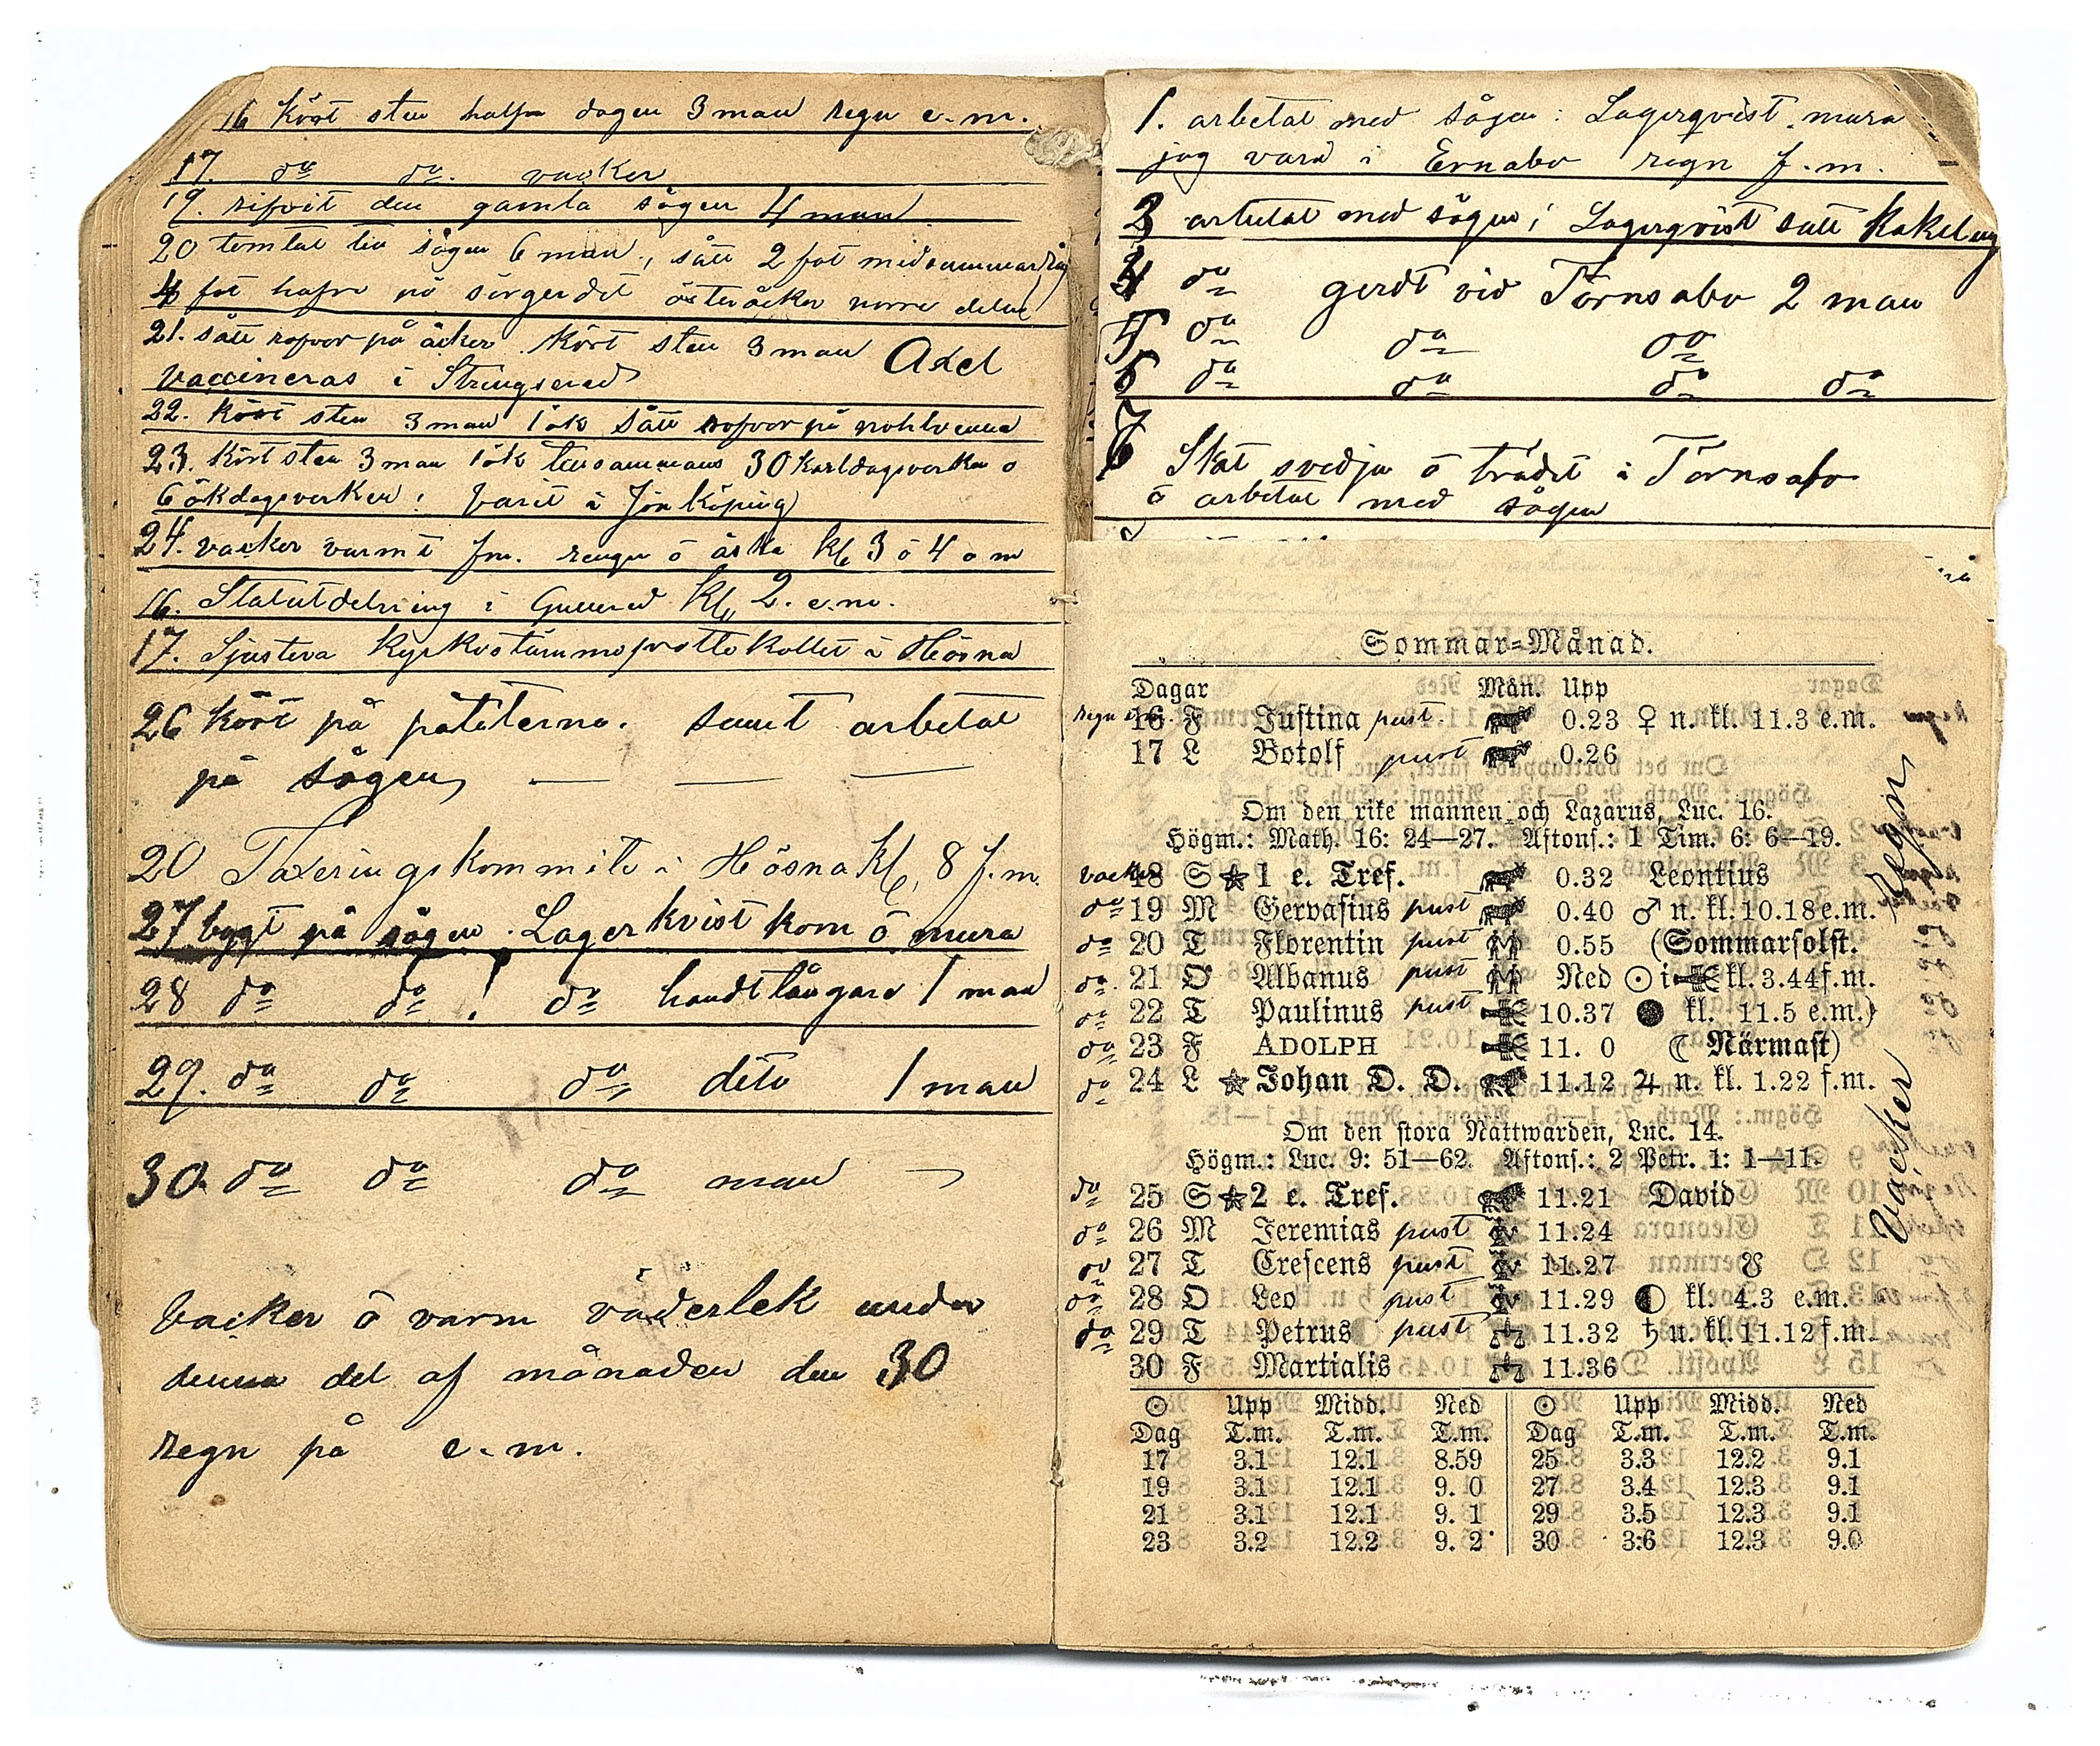 16 kört sten halfva dagen 3 man regn e.m.
17. do do. vacker
19. rifvit den gamla sågen 4 man
20 tomtat till sågen 6 man, sått 2 fat midsommarråg
4 fat hafre på sörgerdet österåcker norre delen
21. sått rofvor på åcker kört sten 3 man Axel
vaccineras i Strengsered
22. kört sten 3 man 1 ök sått rofvor på
23. kört sten 3 man 1 ök tillsammans 30 karldagsverken o
6 ökdagsverken: varit i Jönköping
24. vacker varmt fm. rengn o åska kl, 3 o 4 e m
16. Statutdelning i Gullered kl, 2. e.m.
17. Sjustera kyrkostämmoprottokollet i Hösna
26 kört på pätäterna. samt arbetat
på sågen, — — —
20 Taxeringskommite i Hösna kl, 8 f.m.
27 bygt på sågen. Lagerkvist kom o mura
28 do do ! do handtlångare 1 man
29. do do do dito 1 man
30. do do do man
Vacker o varm väderlek under
denna del af månaden den 30
regn på e.m.
1. arbetat med sågen: Lagerqvist mura
jag varit i Ernabo regn f.m.
3 arbetat med sågen; Lagerqvist satt kakelug
4 do gerdt vid Törnsabo 2 man
5 do do do
6 do do do do
7
Skat svedja o trädet i Törnsabo
o arbetat med sågen
8
Sommar=Månad.
Dagar Mån. Upp
regn e.m. 16 F Justina pust. 0.23 ♀ n. kl. 11.3 e.m.
17 L Botolf pust 0.26
Om den rike mannen och Lazarus, Luc. 16.
Högm.: Math. 16: 24—27. Aftons.: 1 Tim. 6: 6—19.
vacker 18 S ★ 1 e. Tref. 0.32 Leontius
do 19 M Gervasius pust 0.40 ♂ n. kl. 10.18 e.m.
do 20 T Florentin pust 0.55 (Sommarsolst.
do 21 O Albanus pust Ned ☉ i kl. 3.44 f.m.
do 22 T Paulinus pust 10.37 ● kl. 11.5 e.m.)
do 23 F ADOLPH 11. 0 ☾ Närmast)
do 24 L ☆ Johan D. D. 11.12 ♃ n. kl. 1.22 f.m.
Om den stora Nattwarden, Luc. 14.
Högm.: Luc. 9: 51—62. Aftons.: 2 Petr. 1: 1—11.
do 25 S ★ 2 e. Tref. 11.21 David
do 26 M Jeremias pust 11.24
do 27 T Crescens pust 11.27 ☋
do 28 O Leo pust 11.29 ◐ kl. 4.3 e.m.
do 29 T Petrus pust 11.32 ♄ n. kl. 11.12 f.m.
30 F Martialis 11.36
Regn
vacker
☉ Upp Midd. Ned ☉ Upp Midd. Ned
Dag T.m. T.m. T.m. Dag T.m. T.m. T.m.
17 3.1 12.1 8.59 25 3.3 12.2 9.1
19 3.1 12.1 9. 0 27 3.4 12.3 9.1
21 3.1 12.1 9. 1 29 3.5 12.3 9.1
23 3.2 12.2 9. 2 30 3:6 12.3 9.0